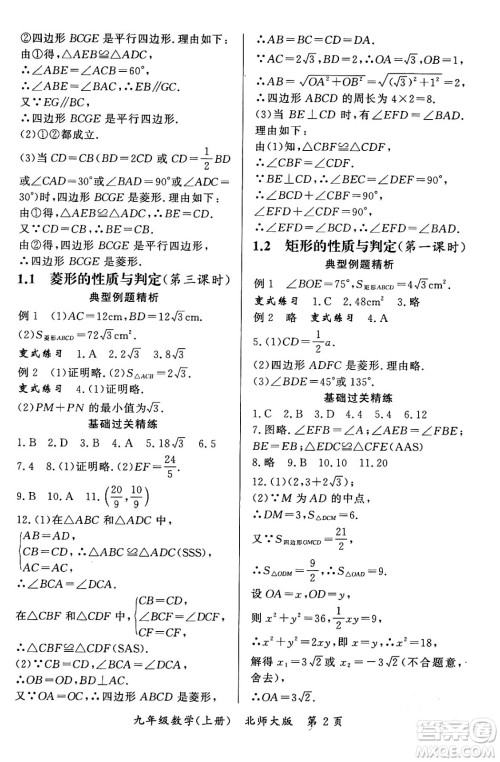 ②四边形 BCGE 是平行四边形.理由如下:
由①得,△AEB≌△ADC,
∴∠ABE=∠ACD=60°,
∴∠ABE=∠BAC,∴EB∥GC.
又∵EG∥BC,
∴四边形 BCGE 是平行四边形.
(2)①②都成立.
(3)当 CD=CB(BD=2CD 或 CD=1/2 BD
或∠CAD=30°或∠BAD=90°或∠ADC=
30°)时,四边形 BCGE 是菱形.
理由:由①得△AEB≌△ADC,
∴BE=CD.
又∵CD=CB,∴BE=CB.
∵四边形 BCGE 是平行四边形,
∴四边形 BCGE 是菱形.
1.1 菱形的性质与判定(第三课时)
典型例题精析
例 1 (1)证明略.
(2)S菱形ABCD=72√3 cm².
变式练习 1.A 2.2√3 3.A
例 2 (1)证明略.(2)S△ABC=2√3.
(2)PM+PN 的最小值为√3.
基础过关精练
1.B 2.D 3.C 4.B 5.16√3 6.5
7.4 8.(1)证明略.(2)EF=24/5.
9.B 10.A 11.(20/9,10/9)
12.(1)在△ABC 和△ADC 中,
{AB=AD,
CB=CD,
AC=AC,
∴△ABC≌△ADC(SSS).
∴∠BCA=∠DCA.
在△CBF 和△CDF 中,
{BC=DC,
∠BCA=∠DCA,
CF=CF,
∴△CBF≌△CDF(SAS).
(2)∵△ABC≌△ADC,
∴四边形 ABCD 是菱形,
∴AB=BC=CD=DA.
∵AC=2√3,BD=2,
∴OA=√3,OB=1.
∴AB=√(OA²+OB²)=√((√3)²+1²)=2,
∴四边形 ABCD 的周长为 4×2=8.
(3)当 BE⊥CD 时,∠EFD=∠BCD.
理由:由(1)知,△CBF≌△CDF,
∴∠CBF=∠CDF.
∵BE⊥CD,
∴∠BEC=∠DEF=90°,
∴∠EFD=∠BCD.
1.2 矩形的性质与判定(第一课时)
典型例题精析
例 1 ∠BOE=75°,S矩形ABCD=4√3.
变式练习 1.C 2.48cm² 3.C
例 2 略 变式练习 1.(1)CD=1/2 a.
(2)四边形 ADFC 是菱形.
(3)∠E=45°或 135°.
基础过关精练
1.C 2.B 3.D 4.A 5.A 6.D
7.图略.∠EFD=∠A=∠B,
BE=EF,∴△EFD≌△EAF(AAS)
8.略 9.B 10.11 11.20
12.(1)(2,3+2√3);
(2)∵M 为 AD 的中点,
∴S△ODM=S△OAM.
又∵S四边形OMCD=21/2,
∴S△ODM=9/2,∴S△OAD=9.
设 OA=x,OD=y,
则 x²+y²=36,1/2 xy=9,
∴x²+y²=2xy,∴x=y.
解得 x₁=3√2,x₂=-3√2(不合题意,
舍去).
∴OA=3√2.
九年级数学(上册) 北师大版 第 2 页